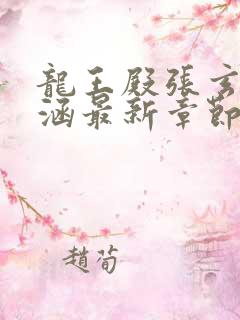 龍王殿張玄
涵最新章節
趙荀